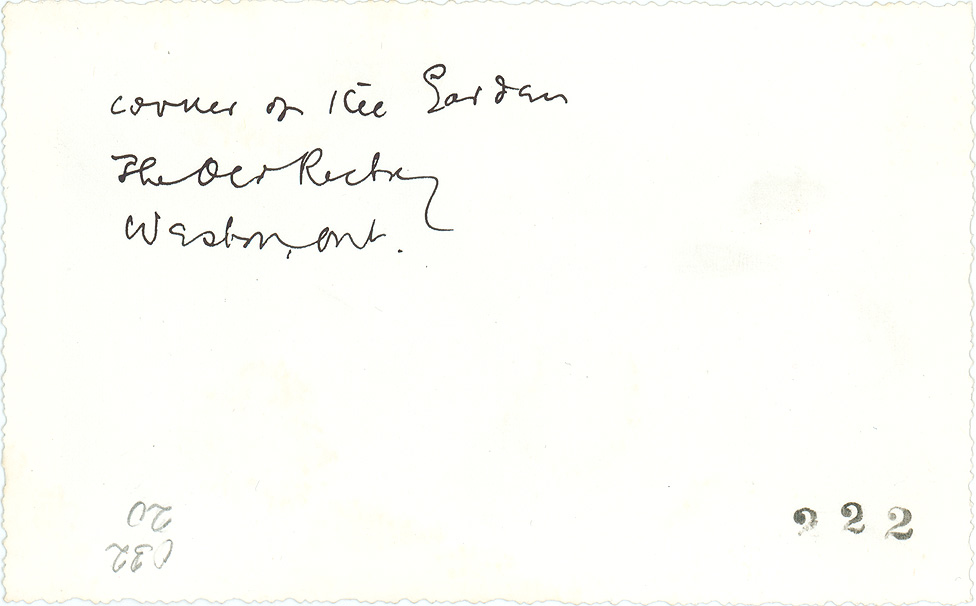 corner of the Garden
The Old Rectory
Weston, Ont.
20
032
222